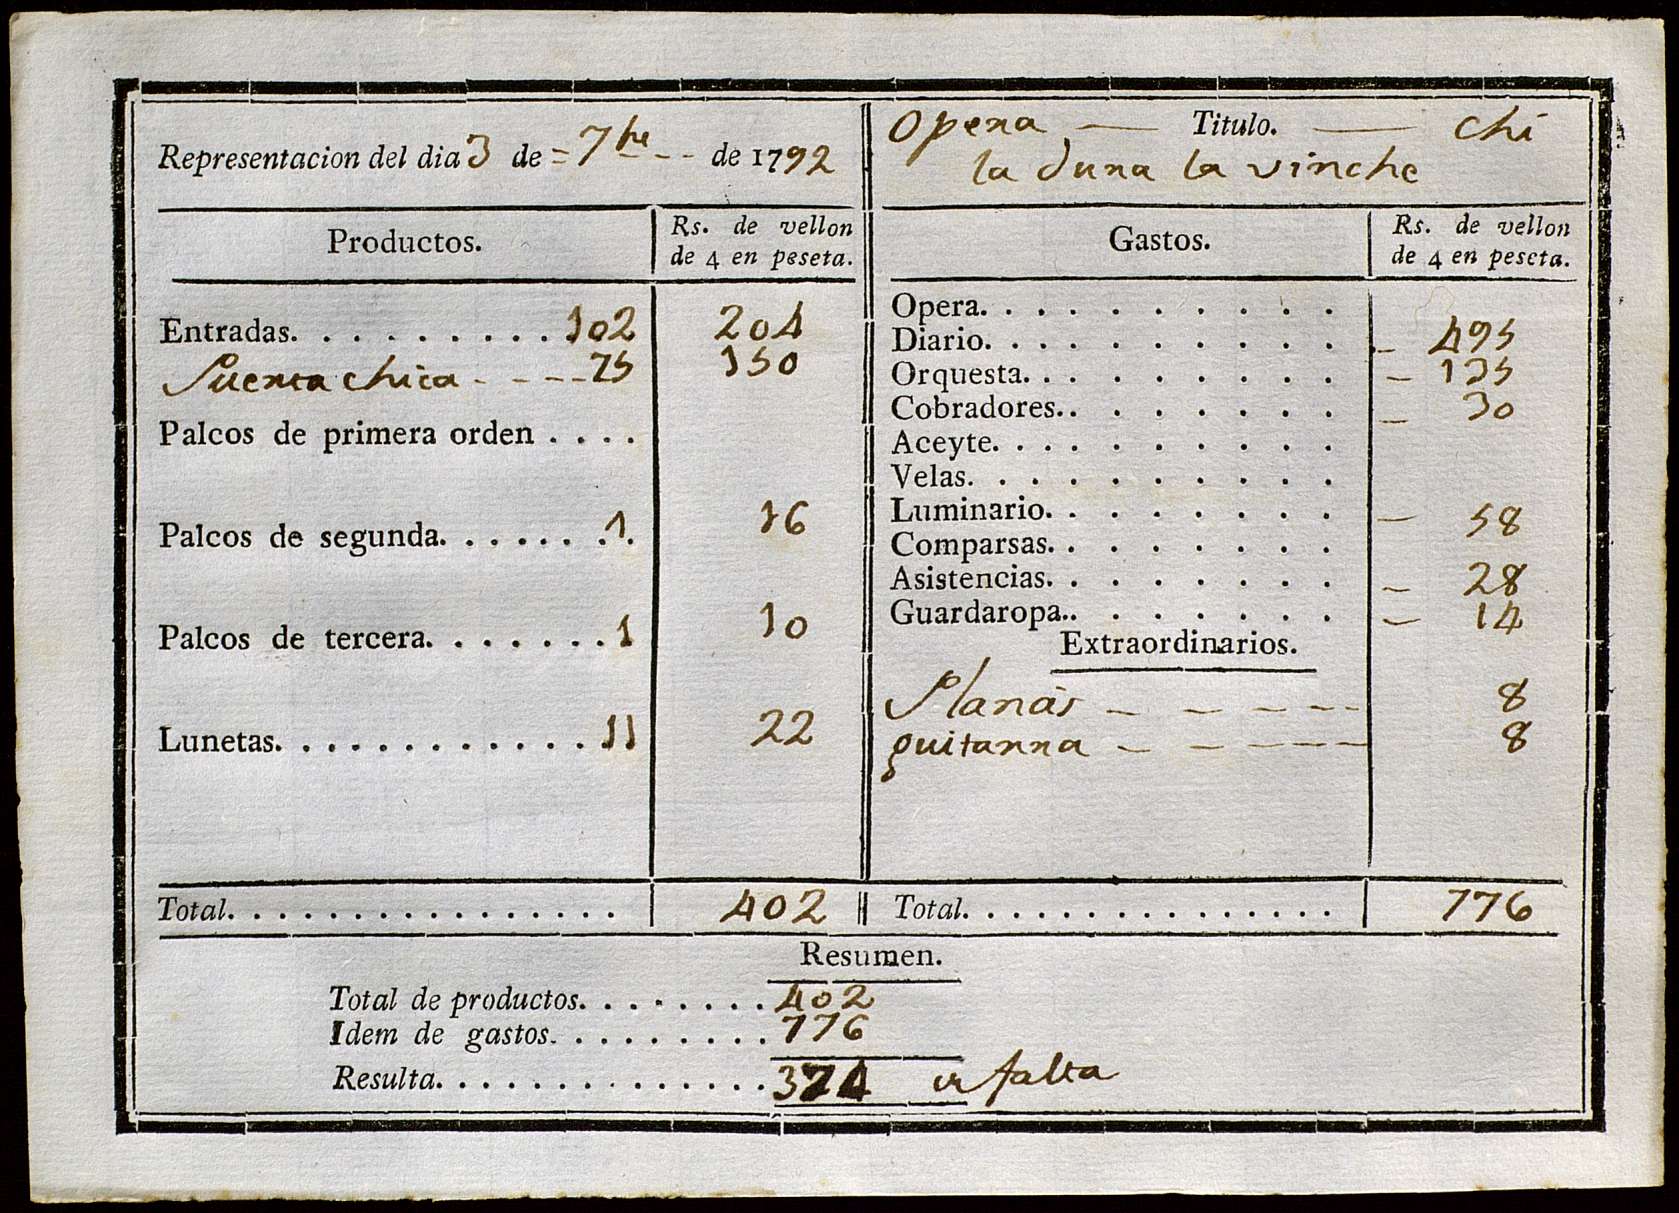 Representacion del dia 3 de = 7bre -- de 1792
Opera — Titulo. — Chi
la dura la vinche
Productos.
Rs. de vellon
de 4 en peseta.
Entradas. . . . . . . . . . 102 204
Puerta chica - - - - 75 150
Palcos de primera orden . . . .
Palcos de segunda. . . . . . . 1. 16
Palcos de tercera. . . . . . . 1 10
Lunetas. . . . . . . . . . . . . 11 22
Total. . . . . . . . . . . . . . . . . 402
Gastos.
Rs. de vellon
de 4 en peseta.
Opera. . . . . . . . . .
Diario. . . . . . . . . . - 495
Orquesta. . . . . . . . . - 135
Cobradores. . . . . . . . - 30
Aceyte. . . . . . . . . .
Velas. . . . . . . . . .
Luminario. . . . . . . . - 58
Comparsas. . . . . . . .
Asistencias. . . . . . . . - 28
Guardaropa. . . . . . . . - 14
Extraordinarios.
Planas - - - - - - 8
guitarra - - - - - - 8
Total. . . . . . . . . . . . . . . . 776
Resumen.
Total de productos. . . . . . . . 402
Idem de gastos. . . . . . . . . 776
Resulta. . . . . . . . . . . . . . 374 falta